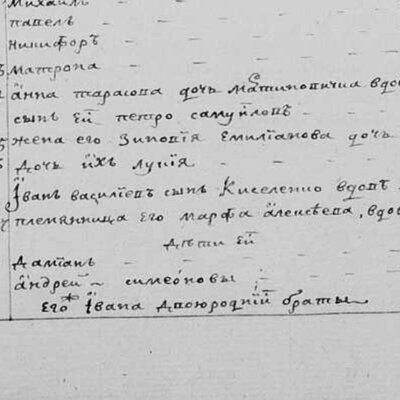 Михаилъ
павелъ
никифоръ
матрона
анна тарасова дочъ мартиновича вдо
сынъ ей петро самуйловъ
жена его зиновія емиліанова дочъ
дочъ ихъ лукія
Іванъ василіевъ сынъ Киселенко вдовъ
племянница его марфа алеѯѣева, вдо
дѣти ей
даміанъ
андрей симеоновы
его Івана двоюродній братъ